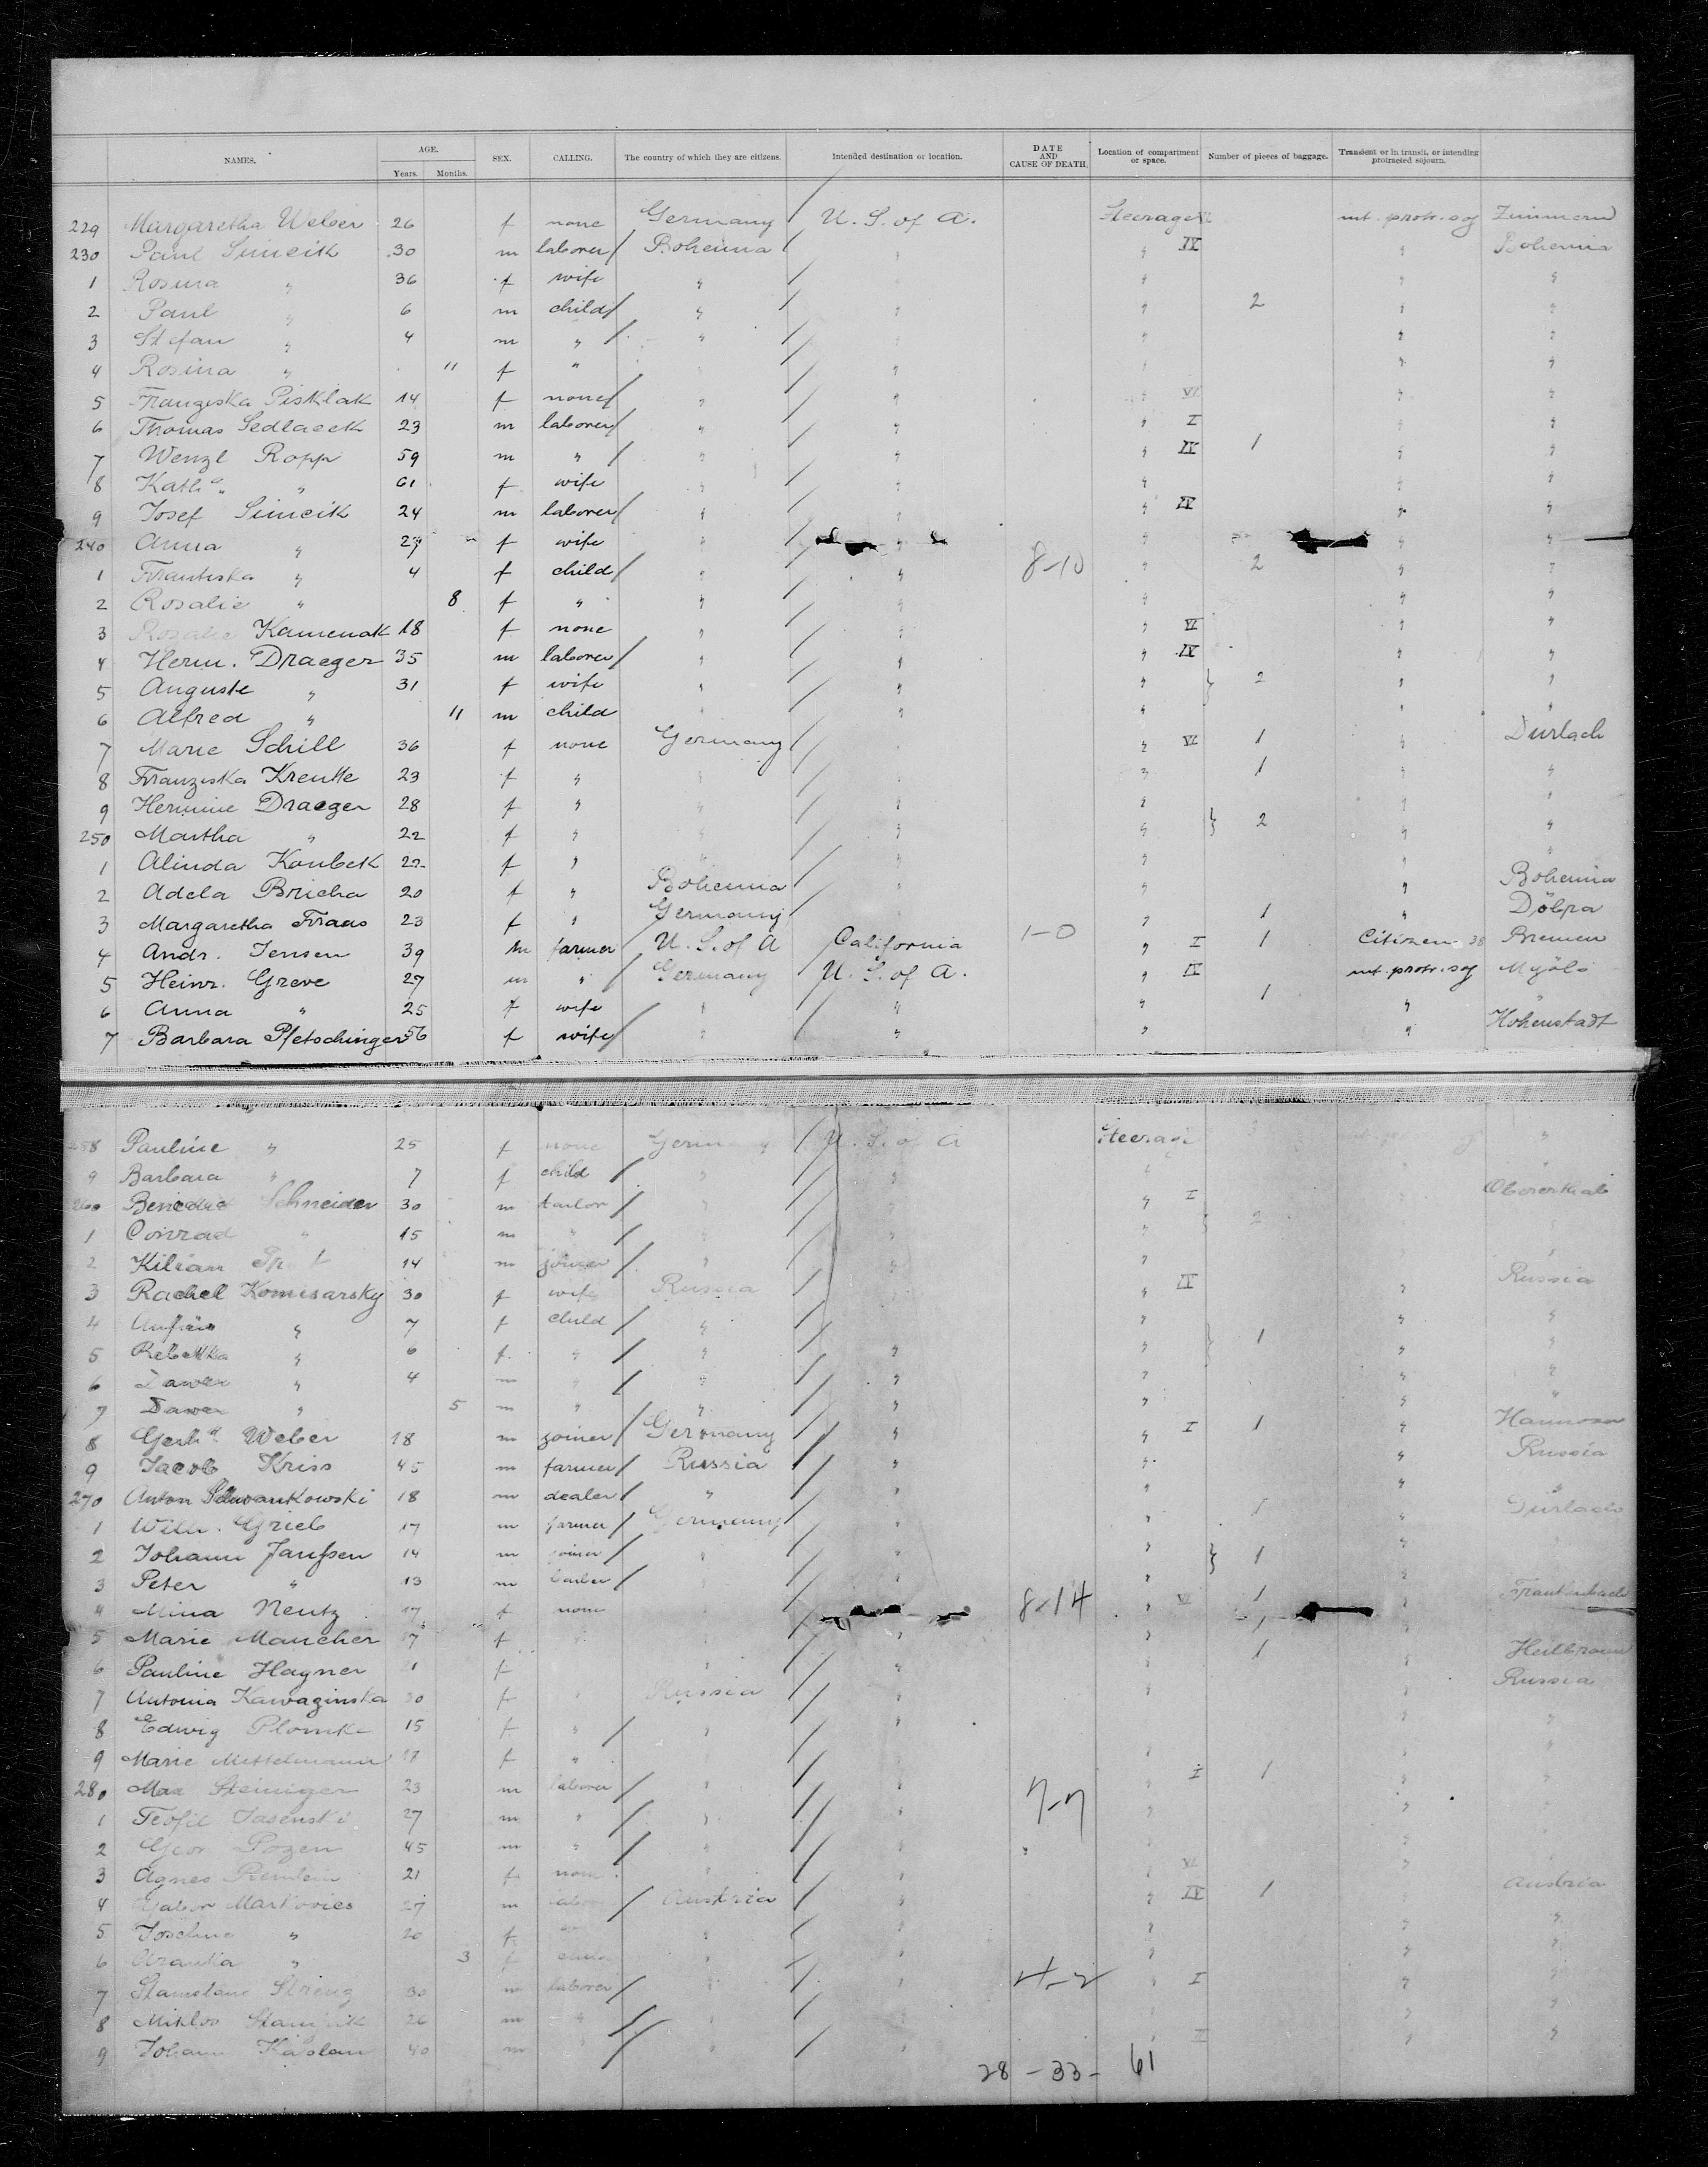 NAMES. AGE. Years. Months. SEX. CALLING. The country of which they are citizens. Intended destination or location. DATE AND CAUSE OF DEATH. Location of compartment or space. Number of pieces of baggage. Transient or in transit, or intending protracted sojourn.
229 Margaretha Weber 26 f none Germany U. S. of A. Steerage VI int. protr. soj Zimmern
230 Paul Simcik 30 m laborer Bohemia " " IV " Bohemia
1 Rosina " 36 f wife " " " " "
2 Paul " 6 m child " " " 2 " "
3 Stefan " 4 m " " " " " "
4 Rosina " 11 f " " " " " "
5 Franziska Pisklak 14 f none " " " VI " "
6 Thomas Sedlacek 23 m laborer " " " I " "
7 Wenzl Ropp 59 m " " " " IV 1 " "
8 Kath a " 61 f wife " " " " "
9 Josef Simcik 24 m laborer " " " IV " "
240 Anna " 27 f wife " " " " "
1 Frantiska " 4 f child " " 8-10 " 2 " "
2 Rosalie " 8 f " " " " " "
3 Rosalie Kamenak 18 f none " " " VI " "
4 Herm. Draeger 35 m laborer " " " IV " "
5 Auguste " 31 f wife " " " } 2 " "
6 Alfred " 11 m child " " " " "
7 Marie Schill 36 f none Germany " " VI 1 " Durlach
8 Franziska Kreutte 23 f " " " " 1 " "
9 Hermine Draeger 28 f " " " " " "
250 Martha " 22 f " " " " } 2 " "
1 Alinda Koubek 22 f " " " " " "
2 Adela Bricha 20 f " Bohemia " " " Bohemia
3 Margaretha Fraas 23 f " Germany " 1 " Döbra
4 Andr. Jensen 39 m farmer U. S. of A California 1-0 " I 1 Citizen 38 Bremen
5 Heinr. Greve 27 m " Germany U. S. of A. " IV int. protr. soj
6 Anna " 25 f wife " " " 1 " "
7 Barbara Pfetschinger 56 f wife " " " " Hohenstadt
258 Pauline " 25 f none Germany U. S. of A Steerage "
9 Barbara " 7 f child " " " "
260 Benedict Schneider 30 m tailor " " " I
1 Conrad " 15 m " " " " } 2
2 Kilian 14 m joiner " " " "
3 Rachel Komisarsky 30 f wife Russia " IV " Russia
4 7 f child " " " "
5 Rebekka " 6 f " " " " } 1 " "
6 " 4 m " " " " " "
7 " 5 m " " " " " "
8 Gerh d Weber 18 m joiner Germany " " I 1 " Hannover
9 Jacob Kriss 45 m farmer Russia " " " Russia
270 Anton Schwankowski 18 m dealer " " " " "
1 Wilh. Grieb 17 m farmer Germany " " 1 " Durlach
2 Johann Janssen 14 m joiner " " " } 1 "
3 Peter " 13 m " " " "
4 Mina Neutz 17 f none " 8-14 " VI 1 "
5 Marie Mancher 17 f " " " "
6 Pauline Hagner f " " " 1 " Heilbronn
7 Antonia Kawaginska 30 f " Russia " " Russia
8 Edwig 15 f " " " " " "
9 Marie Mittelmann f " " "
280 Max Steiniger 23 m laborer " " 7-7 " I 1 " "
1 Teofil Jasenski 27 m " " " " "
2 Pozen 45 m " " "
3 Agnes 21 f none " " " VI "
4 Markovics 27 m Austria " " IV 1 Austria
5 " 20 f " " " " "
6 " 3 f child " " " " "
7 30 m laborer " " 4-2 " I " "
8 Miklos 26 m " " " "
9 Johann 40 m " " " " "
28 - 33 - 61